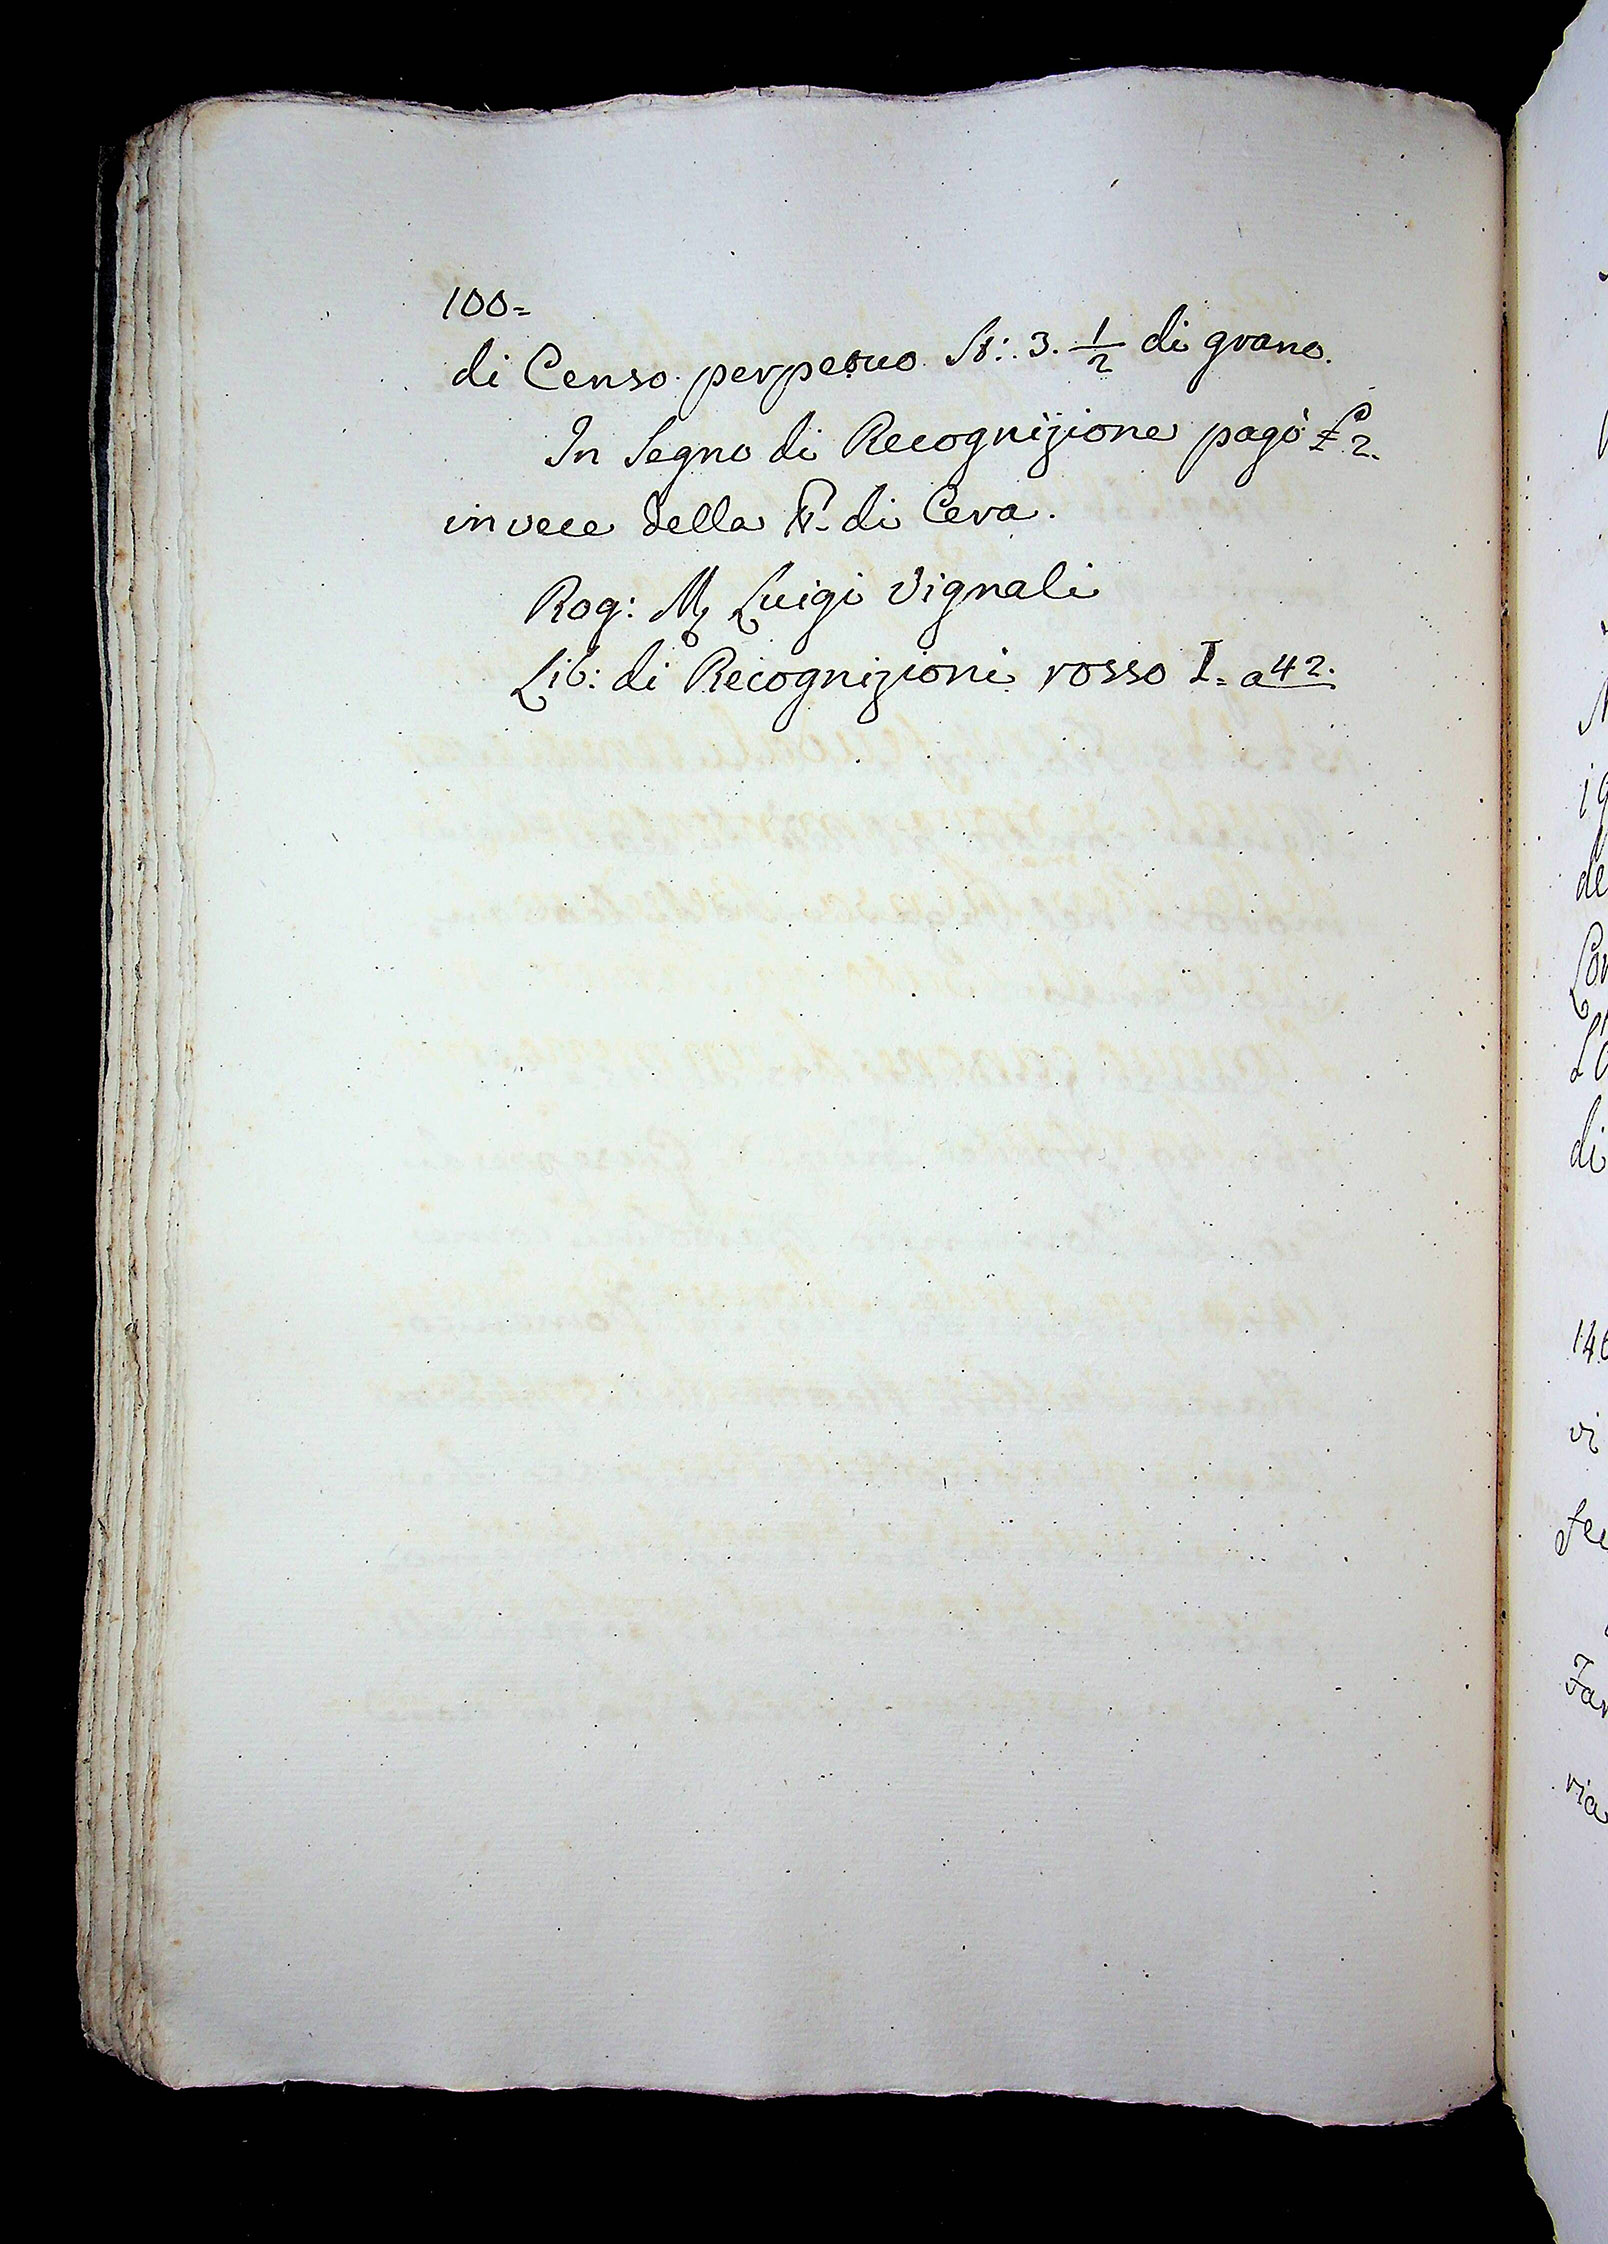 100=
di Censo perpetuo St: 3. 1/2 di grano.
In Segno di Recognizione pagò £ 2.
in vece della di Cera.
Rog: Luigi Vignali
Lib: di Recognizioni rosso I= a 42.
de
di
vi
via